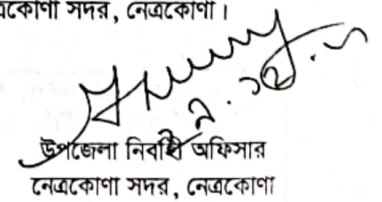 ত্রকোণা সদর, নেত্রকোণা।
উপজেলা নির্বাহী অফিসার
নেত্রকোণা সদর, নেত্রকোণা